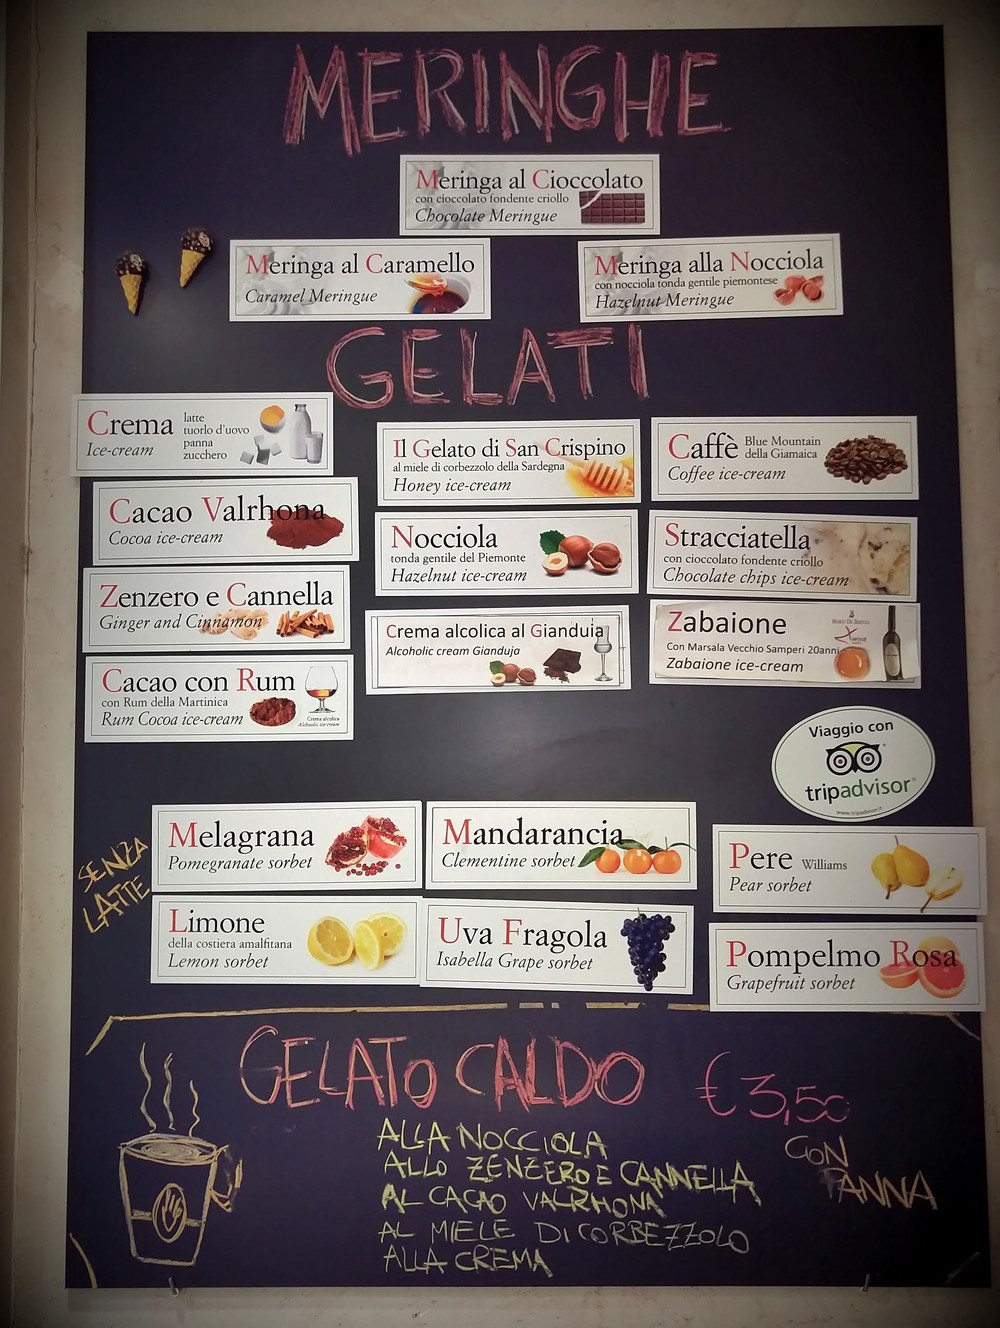 MERINGHE
Meringa al Cioccolato
con cioccolato fondente criollo
Chocolate Meringue
Meringa al Caramello
Caramel Meringue
Meringa alla Nocciola
con nocciola tonda gentile piemontese
Hazelnut Meringue
GELATI
Crema
Ice-cream
latte
tuorlo d'uovo
panna
zucchero
Il Gelato di San Crispino
al miele di corbezzolo della Sardegna
Honey ice-cream
Caffè Blue Mountain
della Giamaica
Coffee ice-cream
Cacao Valrhona
Cocoa ice-cream
Nocciola
tonda gentile del Piemonte
Hazelnut ice-cream
Stracciatella
con cioccolato fondente criollo
Chocolate chips ice-cream
Zenzero e Cannella
Ginger and Cinnamon
Crema alcolica al Gianduia
Alcoholic cream Gianduja
Zabaione
Con Marsala Vecchio Samperi 20anni
Zabaione ice-cream
Cacao con Rum
con Rum della Martinica
Rum Cocoa ice-cream
Crema alcolica
Alchoolic ice-cream
Viaggio con
tripadvisor®
www.tripadvisor.it
SENZA
LATTE
Melagrana
Pomegranate sorbet
Mandarancia
Clementine sorbet
Pere Williams
Pear sorbet
Limone
della costiera amalfitana
Lemon sorbet
Uva Fragola
Isabella Grape sorbet
Pompelmo Rosa
Grapefruit sorbet
GELATO CALDO € 3,50
CON
PANNA
ALLA NOCCIOLA
ALLO ZENZERO E CANNELLA
AL CACAO VALRHONA
AL MIELE DI CORBEZZOLO
ALLA CREMA